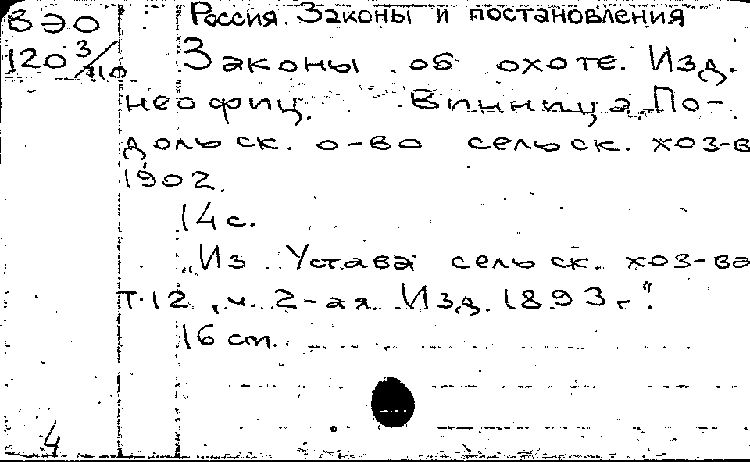 ВЭО
120 3/710
Россия. Законы и постановления
Законы об охоте. Изд.
неофиц. Винница, По-
дольск. о-во сельск. хоз-в
1902.
14 с.
„Из Устава сельск. хоз-ва
т. 12, ч. 2-ая Изд. 1893 г."
16 ст.
4